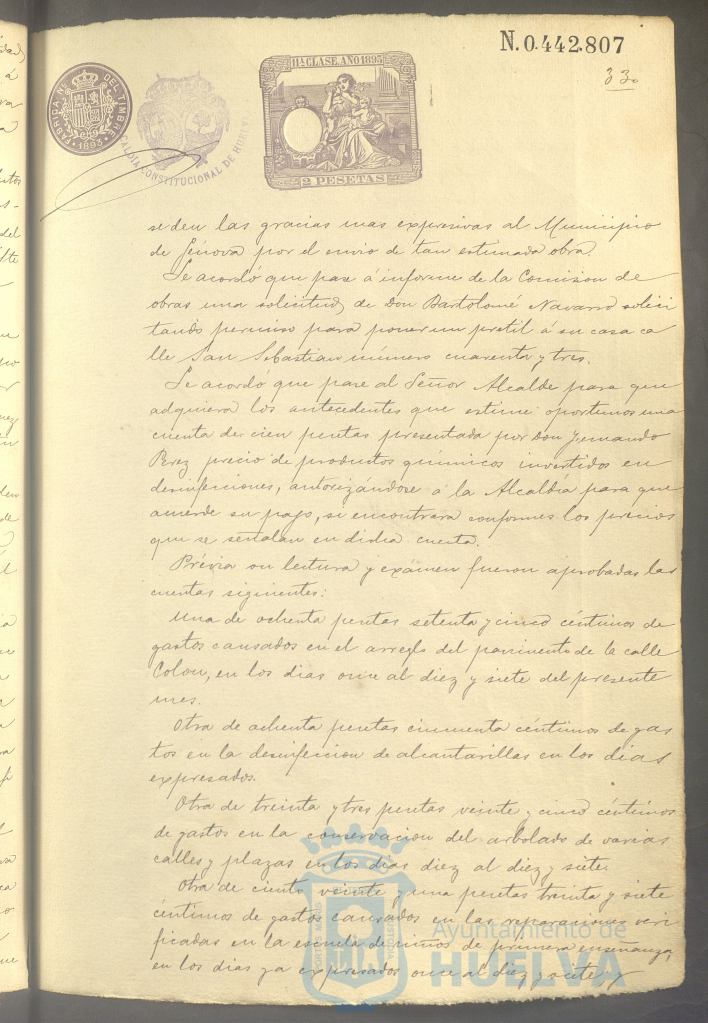 N.0.442.807
33
FABRICA NAL DEL TIMBRE
1893
ALCALDIA CONSTITUCIONAL DE HUELVA
11ª CLASE. AÑO 1893
2 PESETAS
se den las gracias mas expresivas al Municipio
de Génova por el envio de tan estimada obra.
Se acordó que pase á informe de la Comision de
obras una solicitud de Don Bartolomé Navarro solici
tando permiso para poner un pretil á su casa ca
lle San Sebastian número cuarenta y tres.
Se acordó que pase al Señor Alcalde para que
adquiera los antecedentes que estime oportunos una
cuenta de cien pesetas presentada por Don Fernando
Perez precio de productos químicos invertidos en
desinfecciones, autorizándose á la Alcaldía para que
acuerde su pago, si encontrara conformes los precios
que se señalan en dicha cuenta.
Prévia su lectura y exámen fueron aprobadas las
cuentas siguientes:
Una de ochenta pesetas setenta y cinco céntimos de
gastos causados en el arreglo del pavimento de la calle
Colon, en los dias once al diez y siete del presente
mes.
Otra de ochenta pesetas cincuenta céntimos de gas
tos en la desinfeccion de alcantarillas en los dias
expresados.
Otra de treinta y tres pesetas veinte y cinco céntimos
de gastos en la conservacion del arbolado de varias
calles y plazas en los dias diez al diez y siete.
Otra de ciento veinte y una pesetas treinta y siete
céntimos de gastos causados en las reparaciones veri
ficadas en la escuela de niños de primera enseñanza,
en los dias ya expresados once al diez y siete, y
Ayuntamiento de
HUELVA